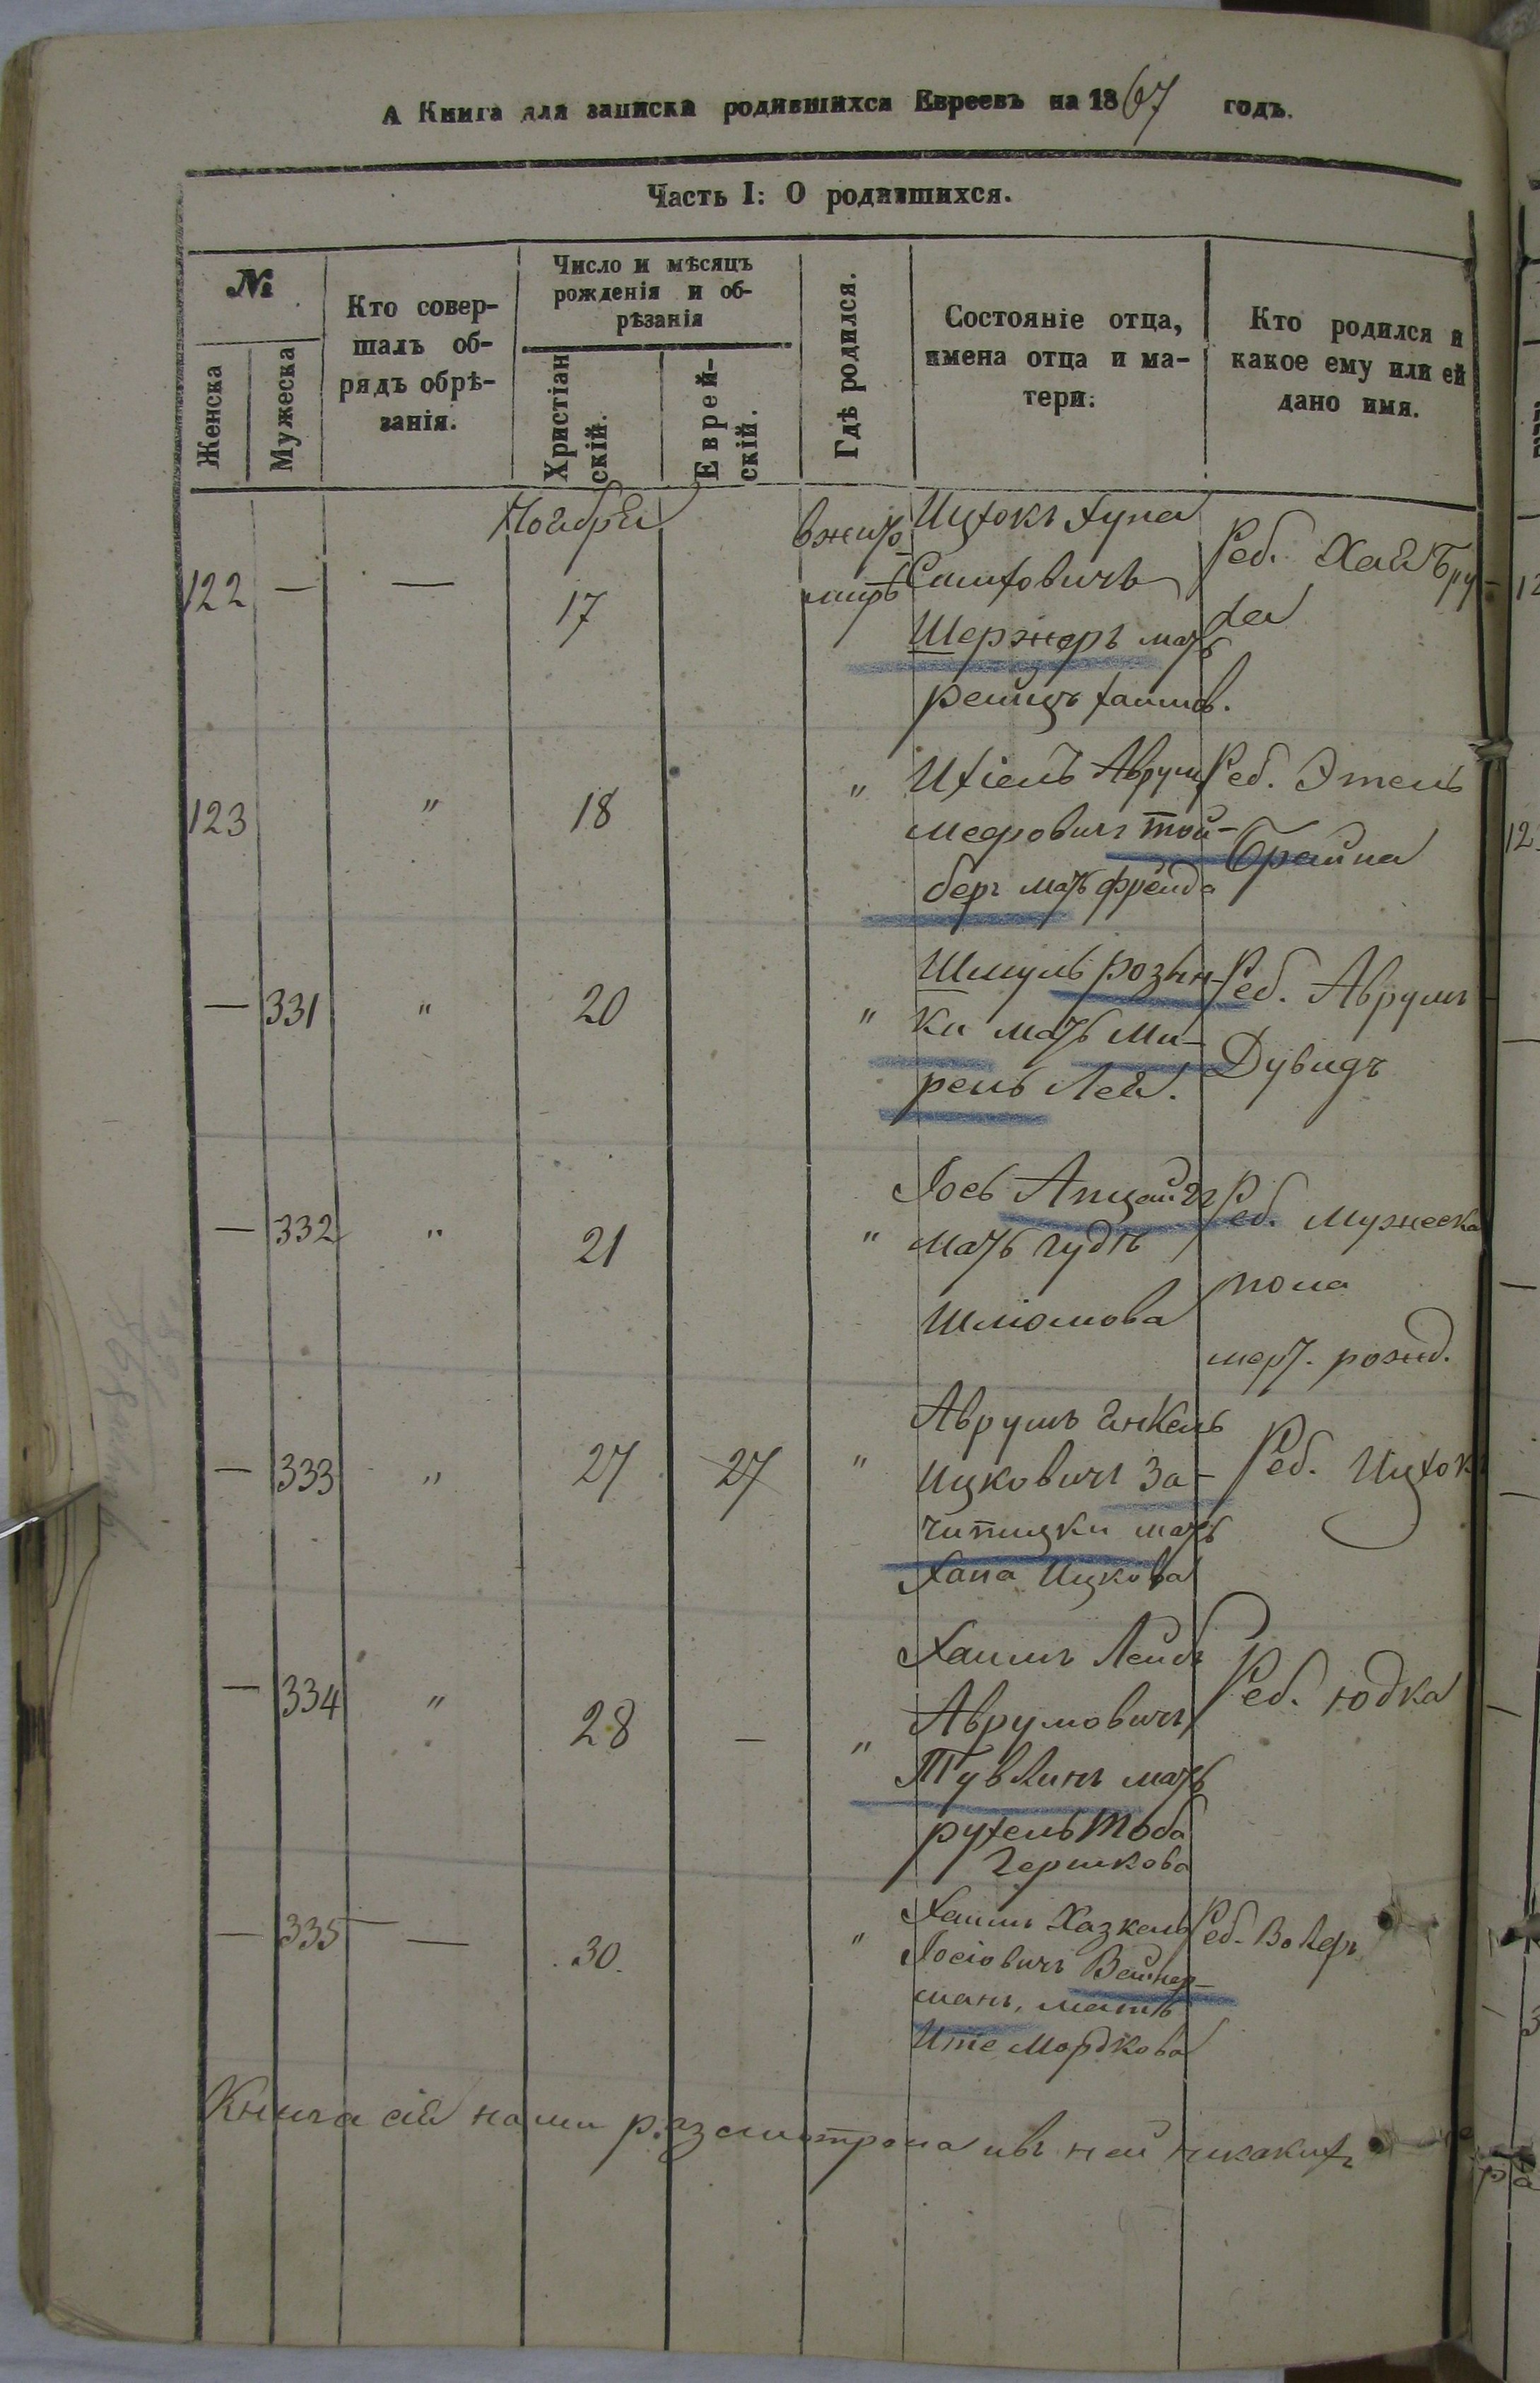 А Книга для записки родившихся Евреевъ на 1867 годъ.
Часть I: О родившихся.
№
Женска
Мужеска
Кто совер-
шалъ об-
рядъ обрѣ-
занія.
Число и мѣсяцъ
рожденія и об-
рѣзанія
Христіан
скій.
Еврей-
скій.
Гдѣ родился.
Состояніе отца,
имена отца и ма-
тери.
Кто родился и
какое ему или ей
дано имя.
Ноября
122 — — 17
в жито
мирѣ
Ицхокъ Хуна
Шерзнеръ мать
Реб. Хая Бру
ха
123 " 18 "
Ихіель Аврум
Меѳровичъ Той-
беръ мать Фрейда
Реб. Этель
Брайна
— 331 " 20 "
Шмуль Розин-
ки мать Ми-
рель Лея.
Реб. Аврумъ
Дувидъ
— 332 " 21 "
Іось
мать Гудя
Шліомова
Реб. Мужеска
пола
мерт. рожд.
— 333 " 27 27 "
Аврумъ Янкель
Ицковичъ За-
чипицки мать
Хана Ицкова
Реб. Ицхокъ
— 334 " 28 — "
Хаимъ Лейбъ
Аврумовичъ
Тувлинъ мать
Рухель Тоба
Гершкова
Реб. Юдка
— 335 — 30. "
Хаимъ Хазкель
Іосіовичъ Вейнер-
манъ, мать
Ите Мордкова
Реб. Волеръ
Книга сія нами разсмотрена и въ ней никакихъ